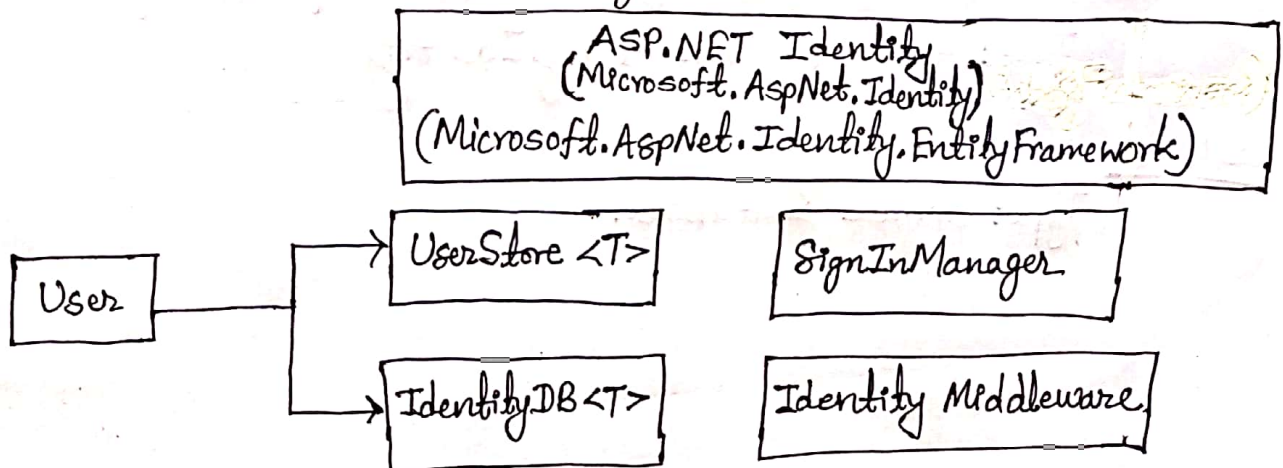 ASP.NET Identity
(Microsoft.AspNet.Identity)
(Microsoft.AspNet.Identity.EntityFramework)
UserStore <T>
SignInManager
User
IdentityDB<T>
Identity Middleware